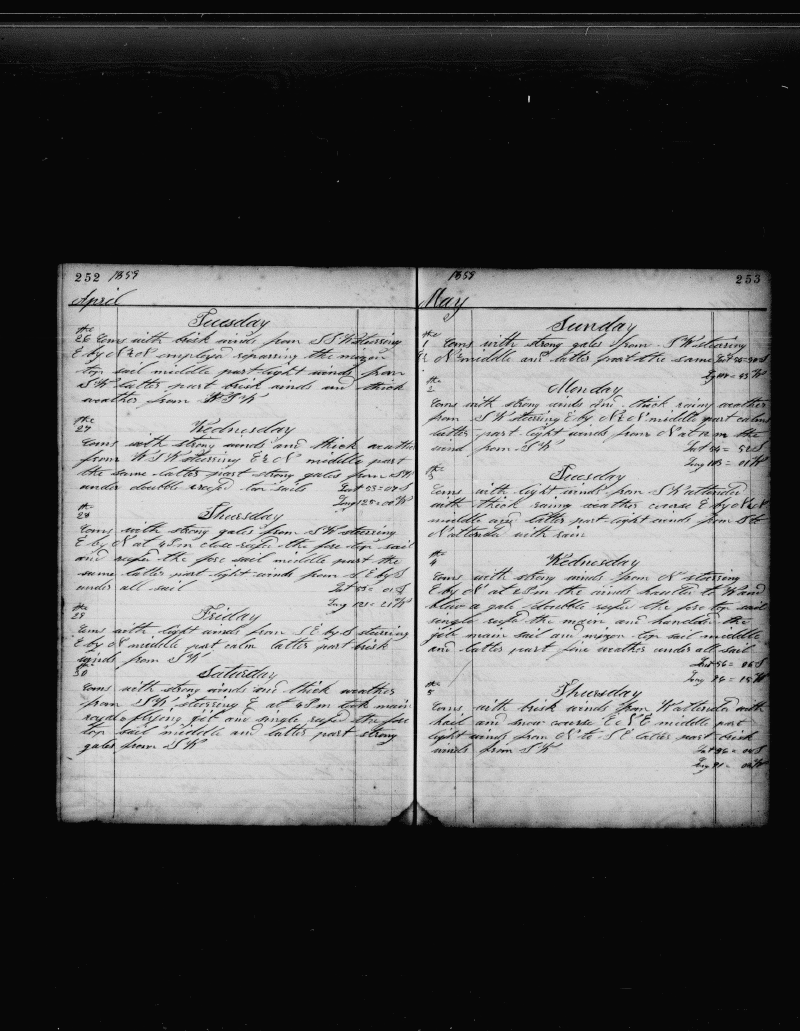 252 1859
April
Tuesday
the
26 Coms with brisk winds from SSW steering
E by N & N employed reparring the mizen
top sail middle part light winds from
SW latter part brisk winds and thick
weather from WSW
the
27
Wednesday
Coms with strong winds and thick weather
from WSW steering E & N middle part
the same latter part strong gales from SW
under double reefed top sails Lat 53 =
Long 125 = 00 W
the
28
Thursday
Coms with strong gales from SW steering
E by N at 4 P m close reefed the fore top sail
and reefed the fore sail middle part the
same latter part light winds from S E by S
under all sail Lat 55 = 01 S
Long 121 = 21 W
the
29
Friday
Coms with light winds from S E by S steering
E by N middle part calm latter part brisk
winds from SW
the
30
Saturday
Coms with strong winds and thick weather
from SW steering E at 4 P m took main
royal flying jib and single reefed the fore
top sail middle and latter part strong
gales from SW
1859 253
May
Sunday
the
1 Coms with strong gales from SW steering
E N middle and latter part the same Lat
Long W
the
2
Monday
Coms with strong winds and thick rainy weather
from SW steering E by N & N middle part calm
latter part light winds from N at 12 m the
wind from SW Lat 56 = 52 S
Long 103 = 01 W
the
3
Tuesday
Coms with light winds from SW attended
with thick rainy weather course E by N & N
middle and latter part light winds from S to
N attended with rain
the
4
Wednesday
Coms with strong winds from N steering
E by N at 2 P m the winds hauled to W and
blew a gale double reefed the fore top sail
single reefed the main and handed the
jib main sail and mizen top sail middle
and latter part fine weather under all sail
Lat 56 = 06 S
Long 86 = 15 W
the
5
Thursday
Coms with brisk winds from W attended with
hail and snow course E N E middle part
light winds from N to S E latter part brisk
winds from SW Lat 56 = 04 S
Long 81 = W